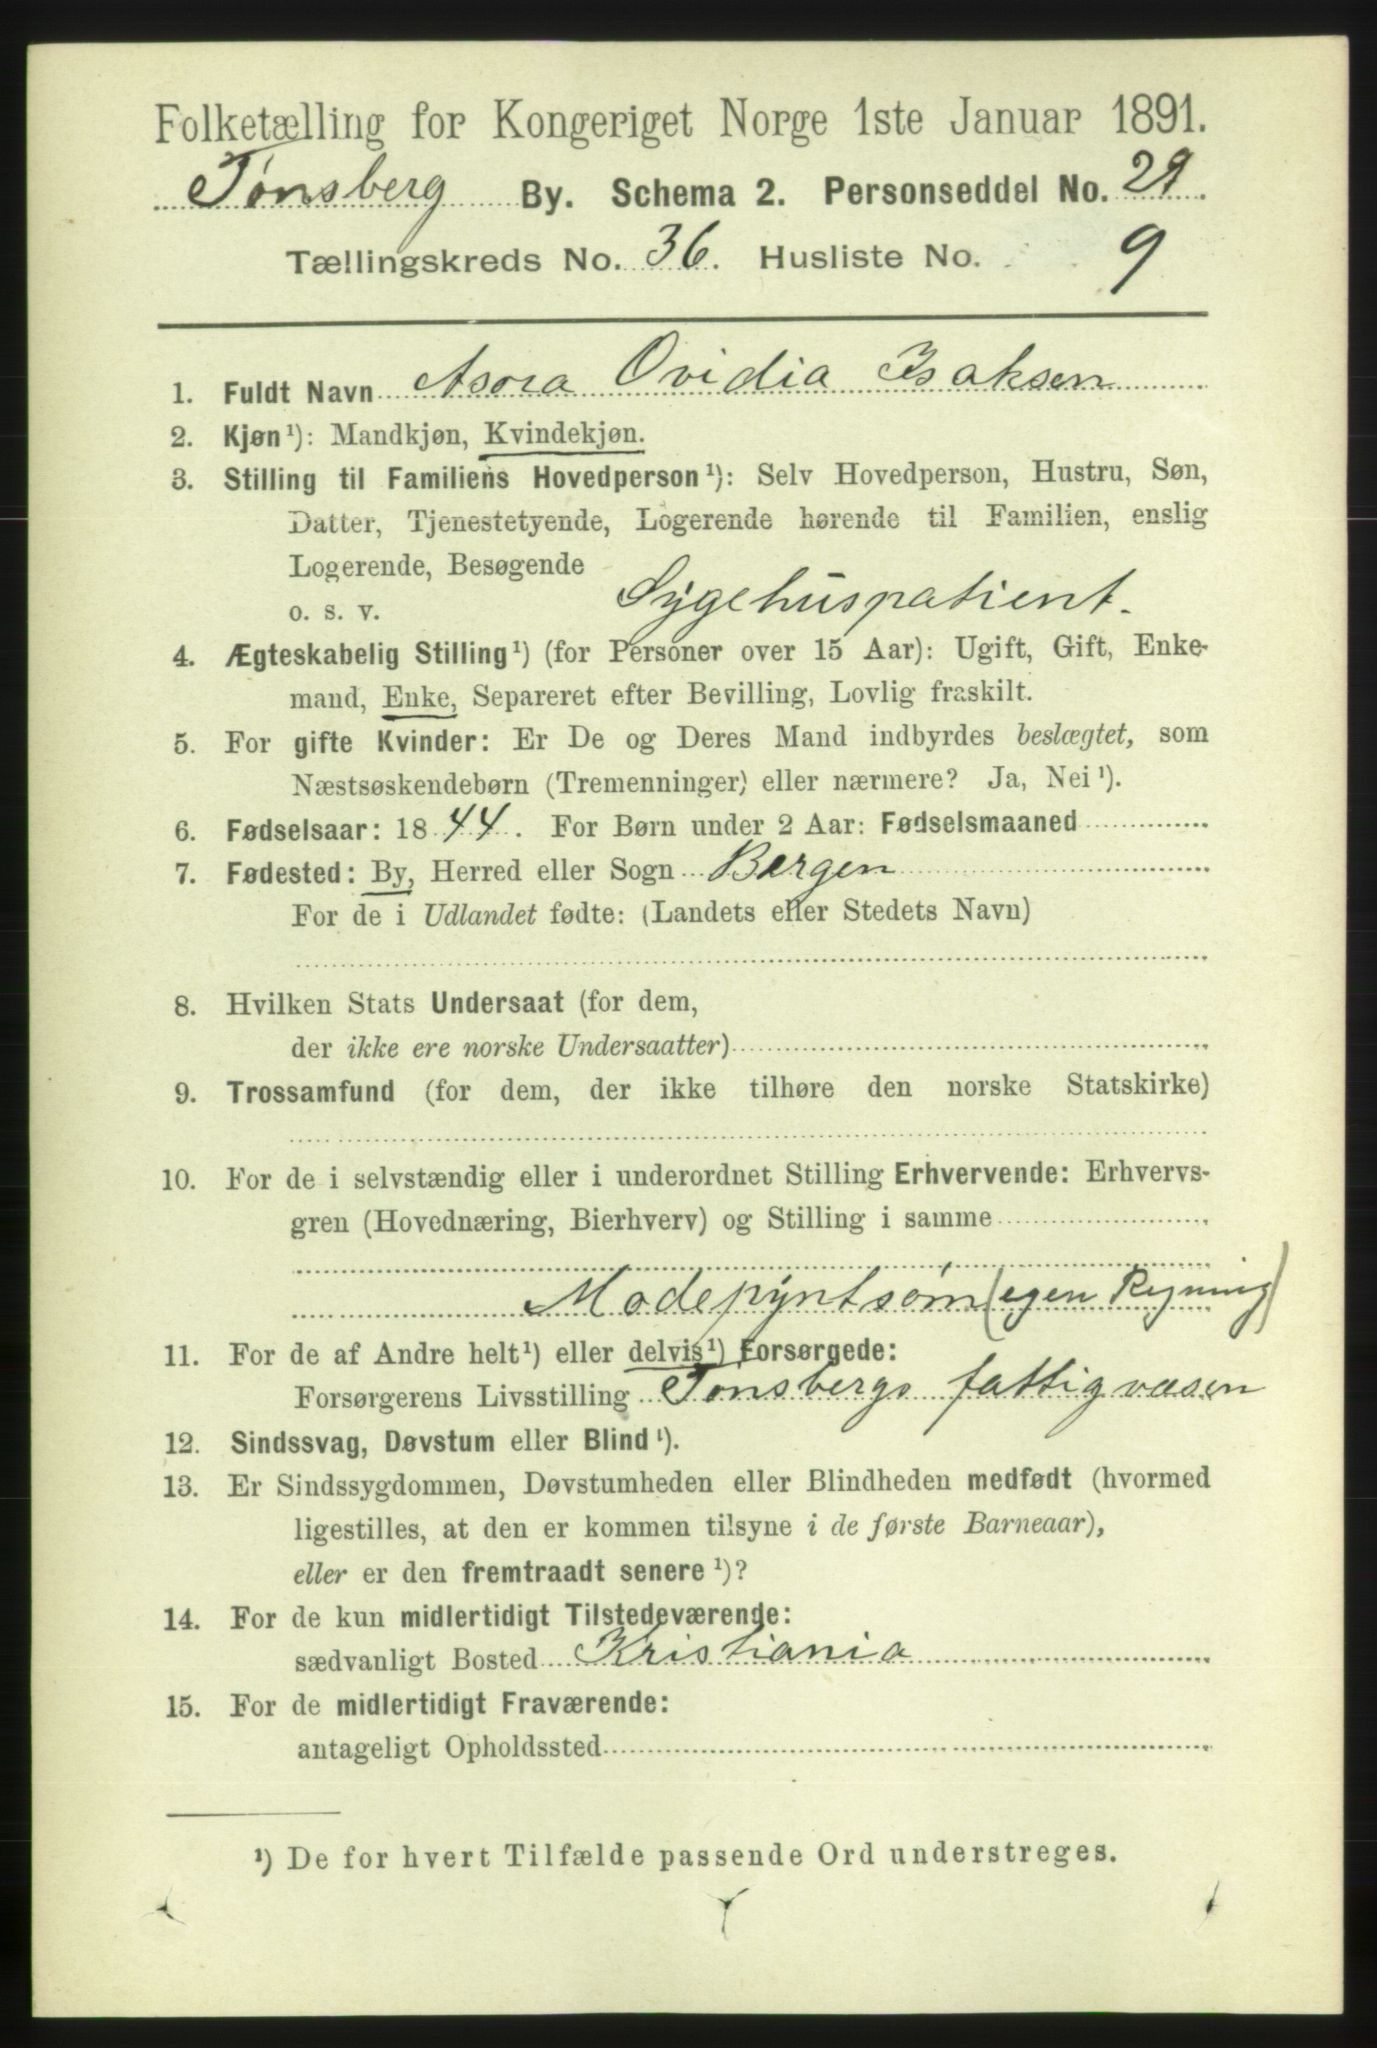 Folketælling for Kongeriget Norge 1ste Januar 1891.
Tønsberg By. Schema 2. Personseddel No. 29.
Tællingskreds No. 36. Husliste No. 9
1. Fuldt Navn Asora Ovidia Isaksen
2. Kjøn¹): Mandkjøn, Kvindekjøn.
3. Stilling til Familiens Hovedperson¹): Selv Hovedperson, Hustru, Søn,
Datter, Tjenestetyende, Logerende hørende til Familien, enslig
Logerende, Besøgende
o. s. v. Sygehuspatient.
4. Ægteskabelig Stilling¹) (for Personer over 15 Aar): Ugift, Gift, Enke-
mand, Enke, Separeret efter Bevilling, Lovlig fraskilt.
5. For gifte Kvinder: Er De og Deres Mand indbyrdes beslægtet, som
Næstsøskendebørn (Tremenninger) eller nærmere? Ja, Nei¹).
6. Fødselsaar: 1844. For Børn under 2 Aar: Fødselsmaaned
7. Fødested: By, Herred eller Sogn Bergen
For de i Udlandet fødte: (Landets eller Stedets Navn)
8. Hvilken Stats Undersaat (for dem,
der ikke ere norske Undersaatter)
9. Trossamfund (for dem, der ikke tilhøre den norske Statskirke)
10. For de i selvstændig eller i underordnet Stilling Erhvervende: Erhvervs-
gren (Hovednæring, Bierhverv) og Stilling i samme
Modepyntsøm (egen Regning)
11. For de af Andre helt¹) eller delvis¹) Forsørgede:
Forsørgerens Livsstilling Tønsbergs fattigvæsen
12. Sindssvag, Døvstum eller Blind¹).
13. Er Sindssygdommen, Døvstumheden eller Blindheden medfødt (hvormed
ligestilles, at den er kommen tilsyne i de første Barneaar),
eller er den fremtraadt senere¹)?
14. For de kun midlertidigt Tilstedeværende:
sædvanligt Bosted Kristiania
15. For de midlertidigt Fraværende:
antageligt Opholdssted
¹) De for hvert Tilfælde passende Ord understreges.